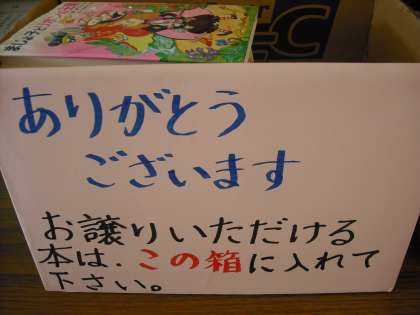 ありがとう
ございます
お譲りいただける
本は、この箱に入れて
下さい。